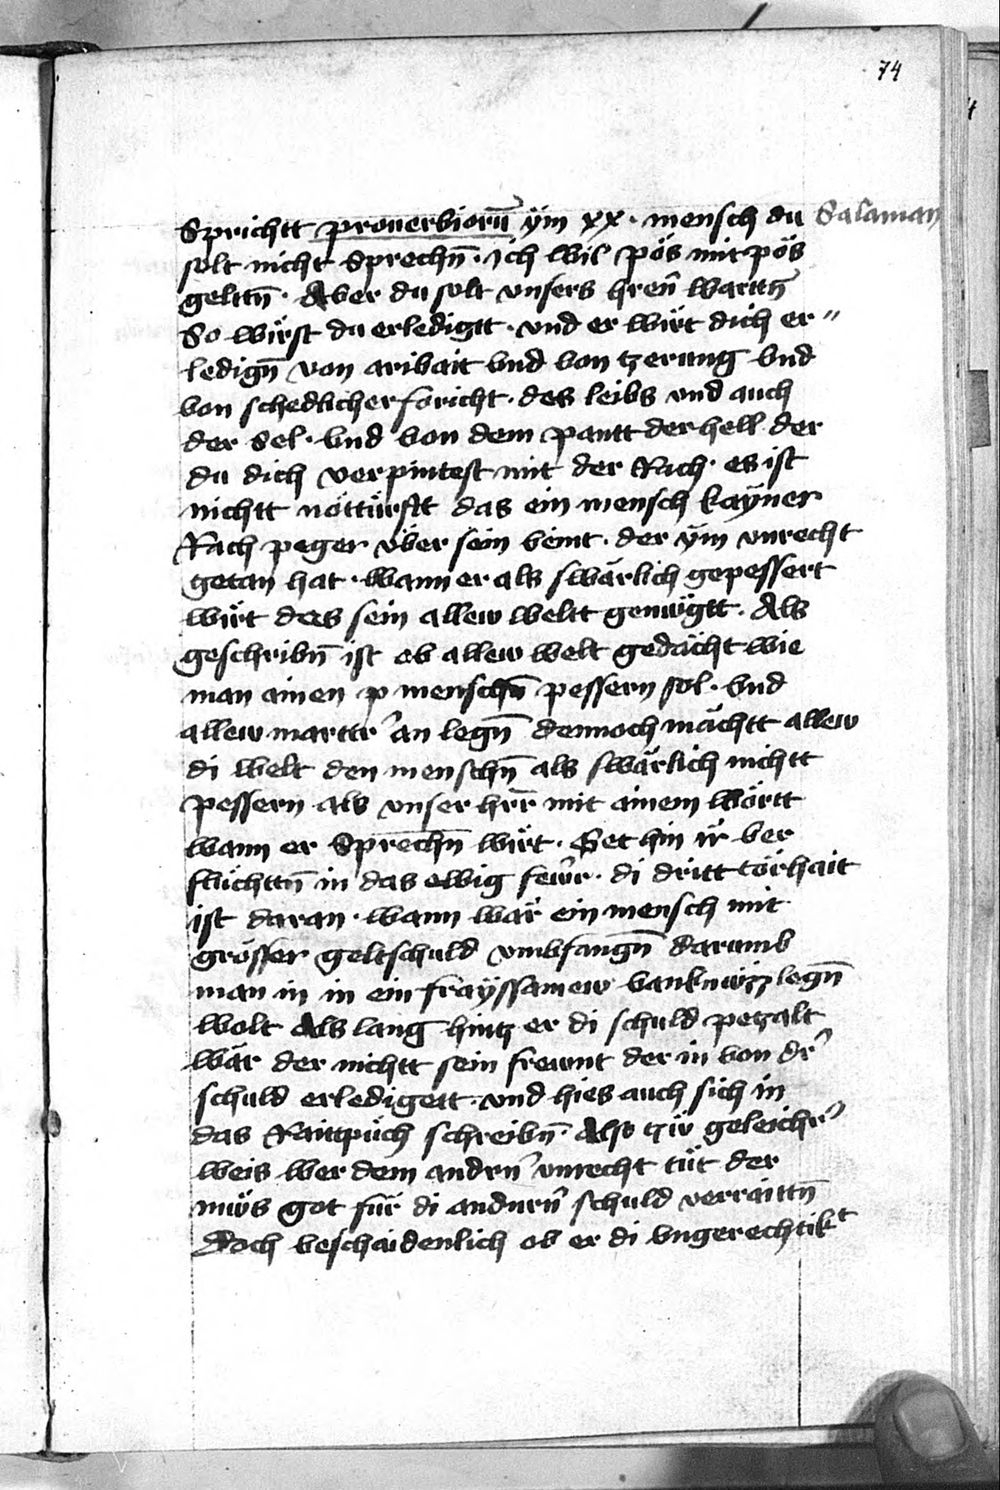 74
Sprichtt prouerbiorū ÿm xx · mensch du Salaman
solt nicht Sprechn̄ · ich wil pös mit pös
geltn̄ · Aber du solt vnsers hren̄ wartt̄
So wirst du erledigtt · vnd er wirt dich er〃
ledign̄ von aribait vnd von tzerung vnd
von schedlicher foricht · des leibs vnd auch
der Sel · vnd von dem pantt der hell der
du dich verpintest mit der Rach · es ist
nichtt nöttürftt das ein mensch kaÿner
Rach peger vber sein veint · der ÿm vnrecht
getan hat · wann er als swärlich gepessert
wirt des sein allew weltt genügtt · Als
geschribn̄ ist ob allew welt gedächt wie
man ainen p menschn̄ pessern sol · vnd
allew marttr̄ an legn̄ dennoch mächtt allew
di welt den menschn̄ als swärlich nichtt
pessern als vnser hrr̄ mit ainem wörtt
wann er Sprechn̄ wirt · Get hin ir ver
flüchttn̄ in das ewig fewr · di dritt törhait
ist daran · wann wär ein mensch mit
grösser geltschuld vmbfangn̄ darumb
man in in ein fraÿssamew vanknüzz legn̄
wolt Als lang hintz er di schuld petzalt
wär der nichtt sein frewnt der in von dr̄
schuld erledigett · vnd hies auch sich in
das Raittpüch schreibn̄ · Also tzw geleichr̄
weis wer dem andrn̄ vnrecht tüt der
müs got für di andurn̄ schuld verraittn̄
Doch beschaidenlich ob er di vngerechtikt